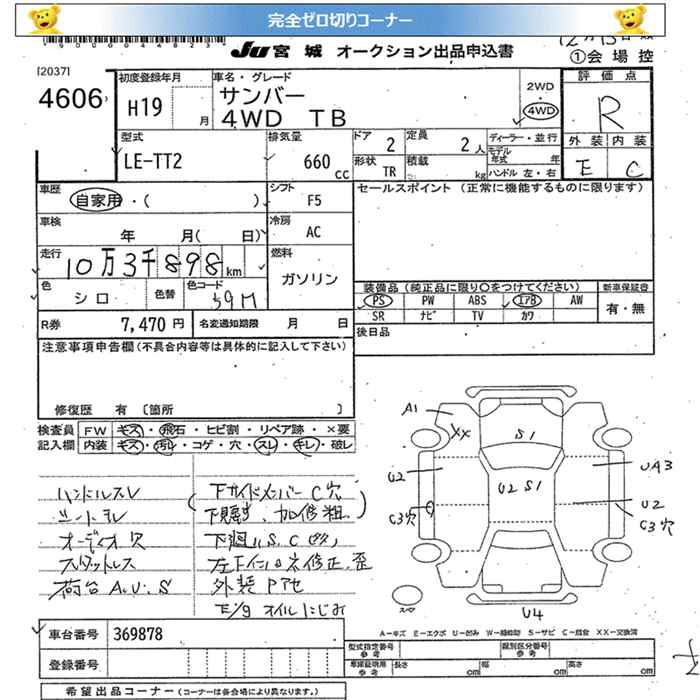 完全ゼロ切りコーナー
JU 宮城 オークション出品申込書
①会場控
[2037]
4606
初度登録年月
H19
月
車名・グレード
サンバー
4WD TB
2WD
4WD
評価点
R
外装 内装
E C
型式
LE-TT2
排気量
660 cc
ドア 2
定員 2人
ディーラー・並行
モデル年式 年
形状 TR
積載 kg
ハンドル 左・右
車歴
自家用・( )
シフト F5
セールスポイント (正常に機能するものに限ります)
車検
年 月( 日)
冷房 AC
走行
10万3千898 km
燃料
ガソリン
色
シロ
色替
色コード
59M
装備品 (純正品に限り○をつけてください)
新車保証書
PS PW ABS エアB AW
有・無
SR ナビ TV カワ
R券 7,470円
名変通知期限 月 日
後日品
注意事項申告欄(不具合内容等は具体的に記入して下さい)
修復歴 有 [箇所 ]
検査員 FW キズ・飛石・ヒビ割・リペア跡・×要
記入欄 内装 キズ・汚れ・コゲ・穴・スレ・キレ・破レ
ハンドルスレ
シートヨレ
オーディオ穴
荷台 A.U.S
下サイドメンバー C穴
外装 Pアセ
E/g オイルにじみ
A1
XX
S1
U2
U2 S1
UA3
U2
C3穴
C3穴
U4
A-キズ E-エクボ U-凹み W-補修跡 S-サビ C-腐食 XX-交換済
車台番号 369878
登録番号
型式指定番号 参考
類別区分番号 参考
車庫証明用 参考
長さ cm
幅 cm
高さ cm
希望出品コーナー (コーナーは各会場により異なります。)